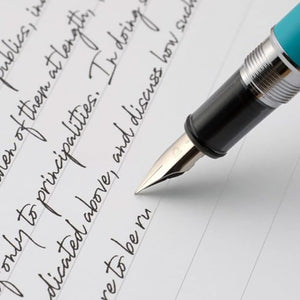 publics, in
of them at length,
only to principalities. In doing
dicated above, and discuss how such
re to be ru